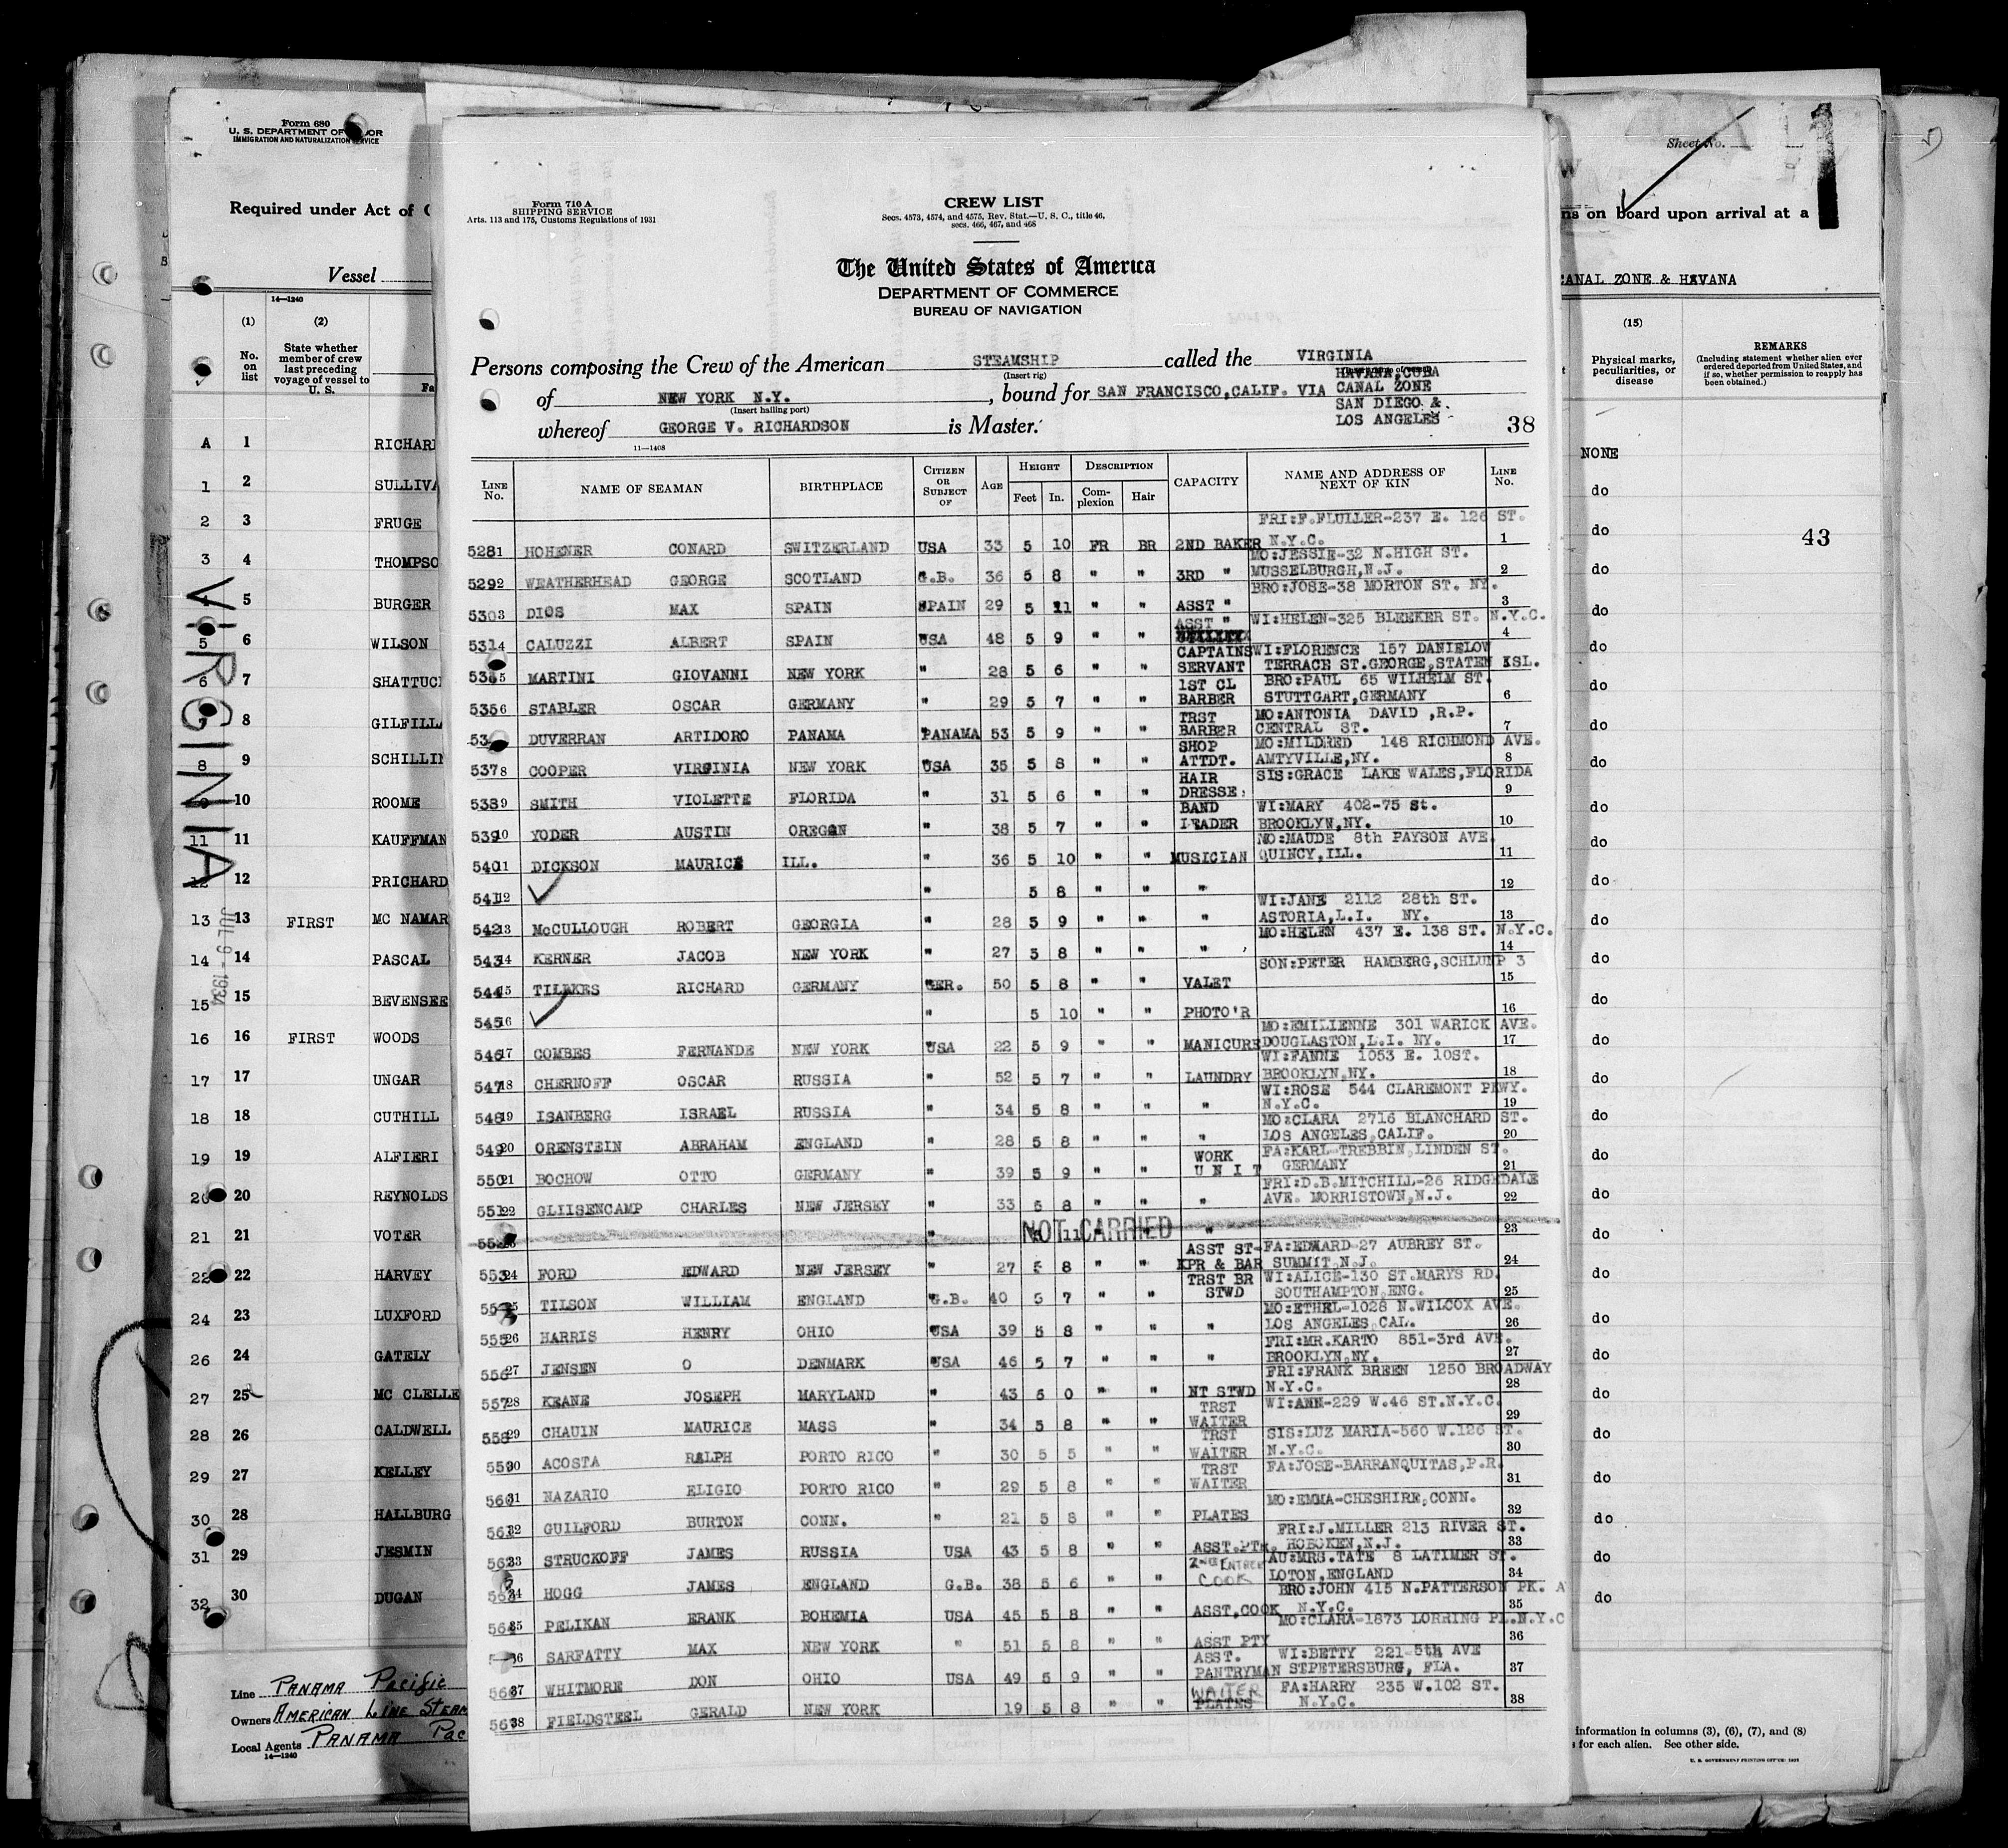 Form 680
U. S. DEPARTMENT OF LABOR
IMMIGRATION AND NATURALIZATION SERVICE
Required under Act of
Vessel
14—1240
(1)
No. on list
(2)
State whether member of crew last preceding voyage of vessel to U. S.
Fa
A 1 RICHAR
1 2 SULLIVA
2 3 FRUGE
3 4 THOMPSO
5 BURGER
5 6 WILSON
6 7 SHATTUC
7 8 GILFILL
8 9 SCHILLI
9 10 ROOME
11 11 KAUFFMAN
12 12 PRICHARD
13 13 FIRST MC NAMAR
14 14 PASCAL
15 15 BEVENSEE
16 16 FIRST WOODS
17 17 UNGAR
18 18 CUTHILL
19 19 ALFIERI
20 20 REYNOLDS
21 21 VOTER
22 22 HARVEY
24 23 LUXFORD
26 24 GATELY
27 25 MC CLELLE
28 26 CALDWELL
29 27 KELLEY
30 28 HALLBURG
31 29 JESMIN
32 30 DUGAN
VIRGINIA
JUL 9 - 1934
Line PANAMA Pacific
Owners AMERICAN LINE STEAM
Local Agents PANAMA Pac
14—1240
Form 710 A
SHIPPING SERVICE
Arts. 113 and 175, Customs Regulations of 1931
CREW LIST
Secs. 4573, 4574, and 4575, Rev. Stat.—U. S. C., title 46,
secs. 466, 467, and 468
The United States of America
DEPARTMENT OF COMMERCE
BUREAU OF NAVIGATION
Persons composing the Crew of the American STEAMSHIP called the VIRGINIA
(Insert rig)
HAVANA, CUBA
of NEW YORK N.Y. , bound for SAN FRANCISCO, CALIF. VIA CANAL ZONE
(Insert hailing port)
SAN DIEGO &
whereof GEORGE V. RICHARDSON is Master. LOS ANGELES
38
11—1408
LINE No. NAME OF SEAMAN BIRTHPLACE CITIZEN OR SUBJECT OF AGE HEIGHT Feet In. DESCRIPTION Complexion Hair CAPACITY NAME AND ADDRESS OF NEXT OF KIN LINE No.
FRI:F.FLULLER-237 E. 126 ST.
528 1 HOHENER CONARD SWITZERLAND USA 33 5 10 FR BR 2ND BAKER N.Y.C. 1
MO:JESSIE-32 N.HIGH ST.
529 2 WEATHERHEAD GEORGE SCOTLAND G.B. 36 5 8 " " 3RD " MUSSELBURGH,N.J. 2
BRO:JOSE-38 MORTON ST. NY.
530 3 DIOS MAX SPAIN SPAIN 29 5 11 " " ASST " 3
ASST " WI:HELEN-325 BLEEKER ST. N.Y.C.
531 4 CALUZZI ALBERT SPAIN USA 48 5 9 " " 4
CAPTAINS WI:FLORENCE 157 DANIELOW
5 MARTINI GIOVANNI NEW YORK " 28 5 6 " " SERVANT TERRACE ST.GEORGE,STATEN ISL.
1ST CL BRO:PAUL 65 WILHELM ST.
535 6 STABLER OSCAR GERMANY " 29 5 7 " " BARBER STUTTGART,GERMANY 6
TRST MO:ANTONIA DAVID ,R.P.
DUVERRAN ARTIDORO PANAMA PANAMA 53 5 9 " " BARBER CENTRAL ST. 7
SHOP MO:MILDRED 148 RICHMOND AVE.
537 8 COOPER VIRGINIA NEW YORK USA 35 5 8 " " ATTDT. AMTYVILLE,NY. 8
HAIR SIS:GRACE LAKE WALES,FLORIDA
538 9 SMITH VIOLETTE FLORIDA " 31 5 6 " " DRESSE. 9
BAND WI:MARY 402-75 St.
539 10 YODER AUSTIN OREGON " 38 5 7 " " LEADER BROOKLYN,NY. 10
MO:MAUDE 8th PAYSON AVE.
540 11 DICKSON MAURICE ILL. " 36 5 10 " " MUSICIAN QUINCY,ILL. 11
541 12 " 5 8 " " " 12
WI:JANE 2112 28th ST.
542 13 McCULLOUGH ROBERT GEORGIA " 28 5 9 " " " ASTORIA,L.I. NY. 13
MO:HELEN 437 E. 138 ST. N.Y.C.
543 14 KERNER JACOB NEW YORK " 27 5 8 " " " 14
SON:PETER HAMBERG,SCHLUMP 3
544 15 TILLKES RICHARD GERMANY GER. 50 5 8 " " VALET 15
545 16 " 5 10 " " PHOTO'R 16
MO:EMILIENNE 301 WARICK AVE.
546 17 COMBES FERNANDE NEW YORK USA 22 5 9 " " MANICURE DOUGLASTON,L.I. NY. 17
WI:FANNE 1053 E. 10ST.
547 18 CHERNOFF OSCAR RUSSIA " 52 5 7 " " LAUNDRY BROOKLYN,NY. 18
WI:ROSE 544 CLAREMONT PKWY.
548 19 ISANBERG ISRAEL RUSSIA " 34 5 8 " " " N.Y.C. 19
MO:CLARA 2716 BLANCHARD ST.
549 20 ORENSTEIN ABRAHAM ENGLAND " 28 5 8 " " " LOS ANGELES,CALIF. 20
WORK FA:KARL-TREBBIN,LINDEN ST.
550 21 BOCHOW OTTO GERMANY " 39 5 9 " " U N I T GERMANY 21
FRI:D.B.MITCHILL-26 RIDGEDALE
551 22 GLIISENCAMP CHARLES NEW JERSEY " 33 5 8 " " " AVE. MORRISTOWN,N.J. 22
552 " NOT CARRIED 11 " " 23
ASST ST- FA:EDWARD-27 AUBREY ST.
553 24 FORD EDWARD NEW JERSEY " 27 5 8 " " KPR & BAR SUMMIT,N.J. 24
TRST BR WI:ALICE-130 ST.MARYS RD.
TILSON WILLIAM ENGLAND G.B. 40 5 7 " " STWD SOUTHAMPTON,ENG. 25
MO:ETHEL-1028 N.WILCOX AVE.
555 26 HARRIS HENRY OHIO USA 39 5 8 " " " LOS ANGELES,CAL. 26
FRI:MR.KARTO 851-3rd AVE.
556 27 JENSEN O DENMARK USA 46 5 7 " " " BROOKLYN,NY. 27
FRI:FRANK BREEN 1250 BROADWAY
557 28 KEANE JOSEPH MARYLAND " 43 6 0 " " NT STWD N.Y.C. 28
TRST WI:ANN-229 W.46 ST.N.Y.C.
558 29 CHAUIN MAURICE MASS " 34 5 8 " " WAITER 29
TRST SIS:LUZ MARIA-560 W.126 ST.
559 30 ACOSTA RALPH PORTO RICO " 30 5 5 " " WAITER N.Y.C. 30
TRST FA:JOSE-BARRANQUITAS,P.R.
560 31 NAZARIO ELIGIO PORTO RICO " 29 5 8 " " WAITER 31
MO:EMMA-CHESHIRE,CONN.
561 32 GUILFORD BURTON CONN. " 21 5 8 " " PLATES 32
FRI:J.MILLER 213 RIVER ST.
562 33 STRUCKOFF JAMES RUSSIA USA 43 5 8 " " ASST.PTR. HOBOKEN,N.J. 33
2ND ENTREE AU:MRS.TATE 8 LATIMER ST.
34 HOGG JAMES ENGLAND G.B. 38 5 6 " " COOK LOTON,ENGLAND 34
BRO:JOHN 415 N.PATTERSON PK. A
564 35 PELIKAN FRANK BOHEMIA USA 45 5 8 " " ASST.COOK N.Y.C. 35
MO:CLARA-1873 LORRING PL.N.Y.C
36 SARFATTY MAX NEW YORK " 51 5 8 " " ASST PTY 36
ASST. WI:BETTY 221-5th AVE
566 37 WHITMORE DON OHIO USA 49 5 9 " " PANTRYMAN STPETERSBURG, FLA. 37
WAITER FA:HARRY 235 W.102 ST.
567 38 FIELDSTEEL GERALD NEW YORK 19 5 8 " " PLATES N.Y.C. 38
Sheet No.
1
ns on board upon arrival at a
CANAL ZONE & HAVANA
(15)
Physical marks, peculiarities, or disease
REMARKS
(Including statement whether alien ever ordered deported from United States, and if so, whether permission to reapply has been obtained.)
NONE
do
do
43
do
do
do
do
do
do
do
do
do
do
do
do
do
do
do
do
do
do
do
do
do
do
do
do
do
do
do
information in columns (3), (6), (7), and (8)
for each alien. See other side.
U. S. GOVERNMENT PRINTING OFFICE: 1931